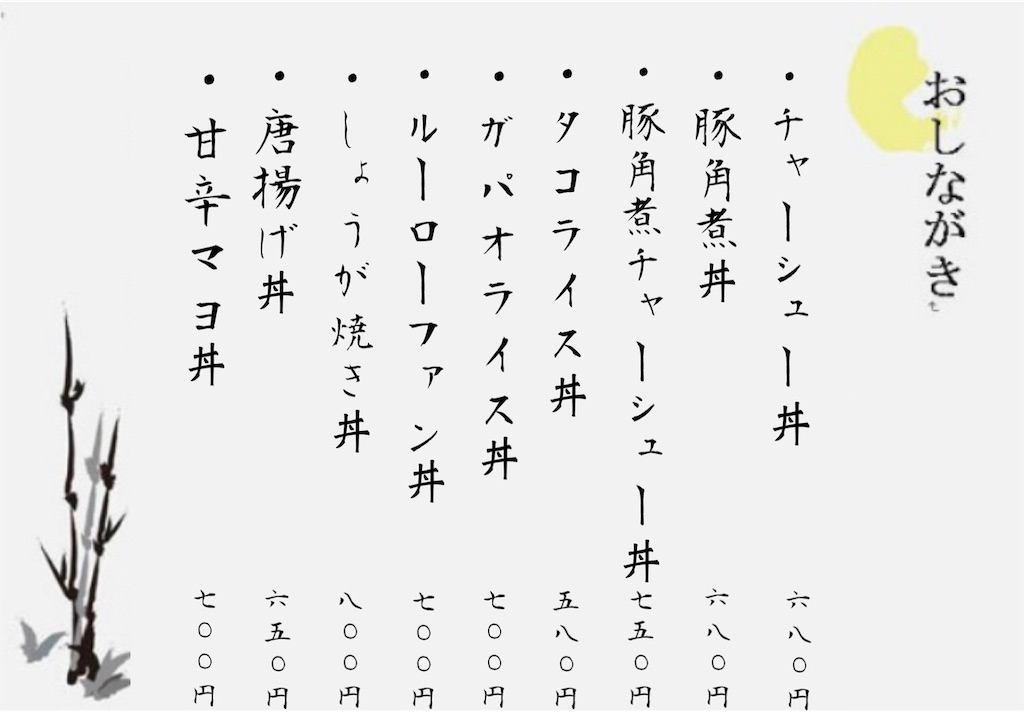 おしながき
・チャーシュー丼 六八〇円
・豚角煮丼 六八〇円
・豚角煮チャーシュー丼 七五〇円
・タコライス丼 五八〇円
・ガパオライス丼 七〇〇円
・ルーローファン丼 七〇〇円
・しょうが焼き丼 八〇〇円
・唐揚げ丼 六五〇円
・甘辛マヨ丼 七〇〇円